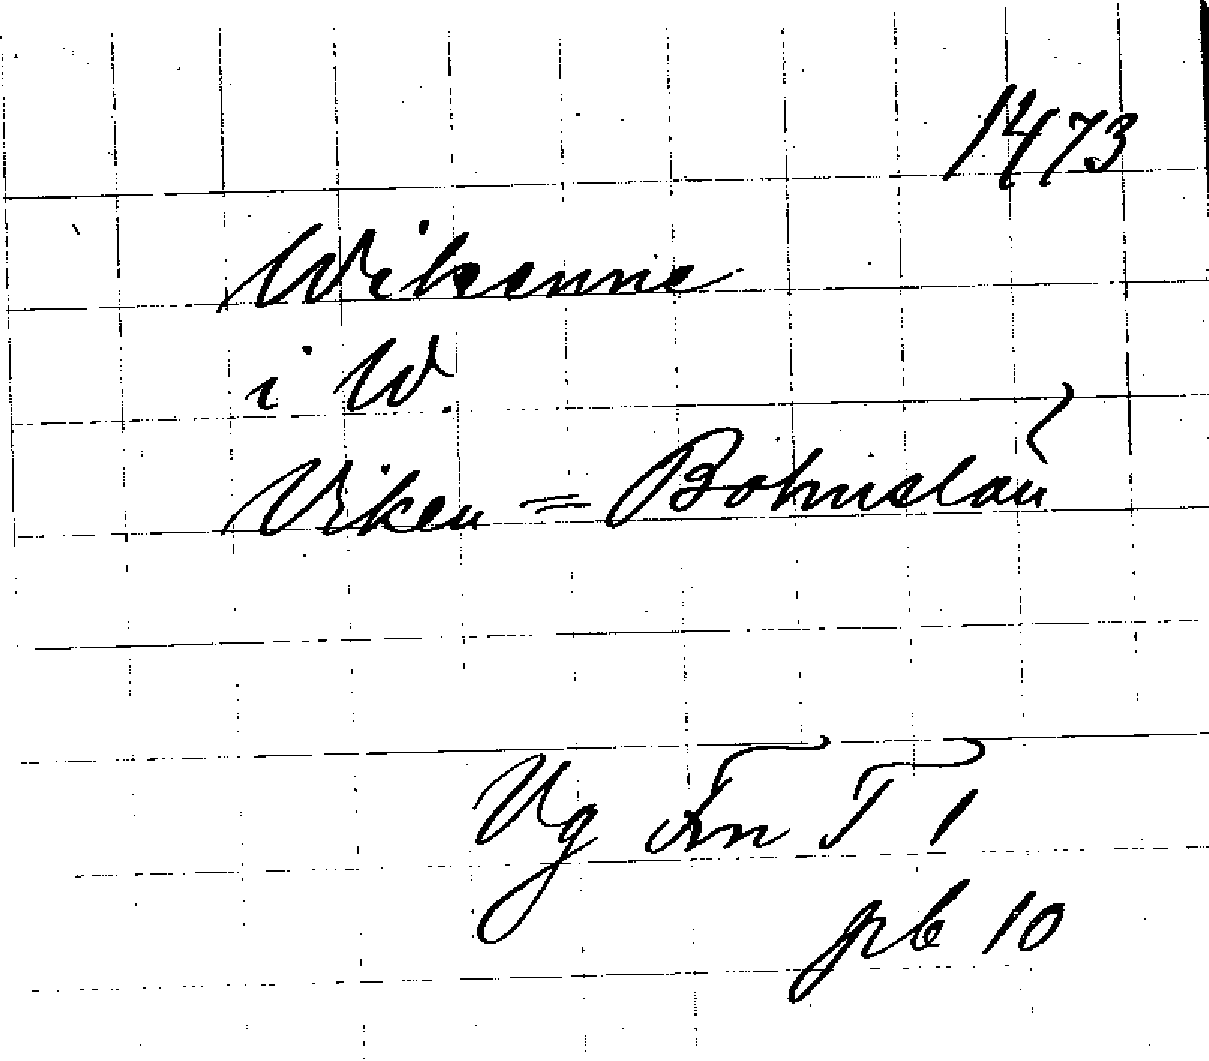 1473
Wikenne
i W.
Viken = Bohuslän
Vg Fn T 1
pb 10